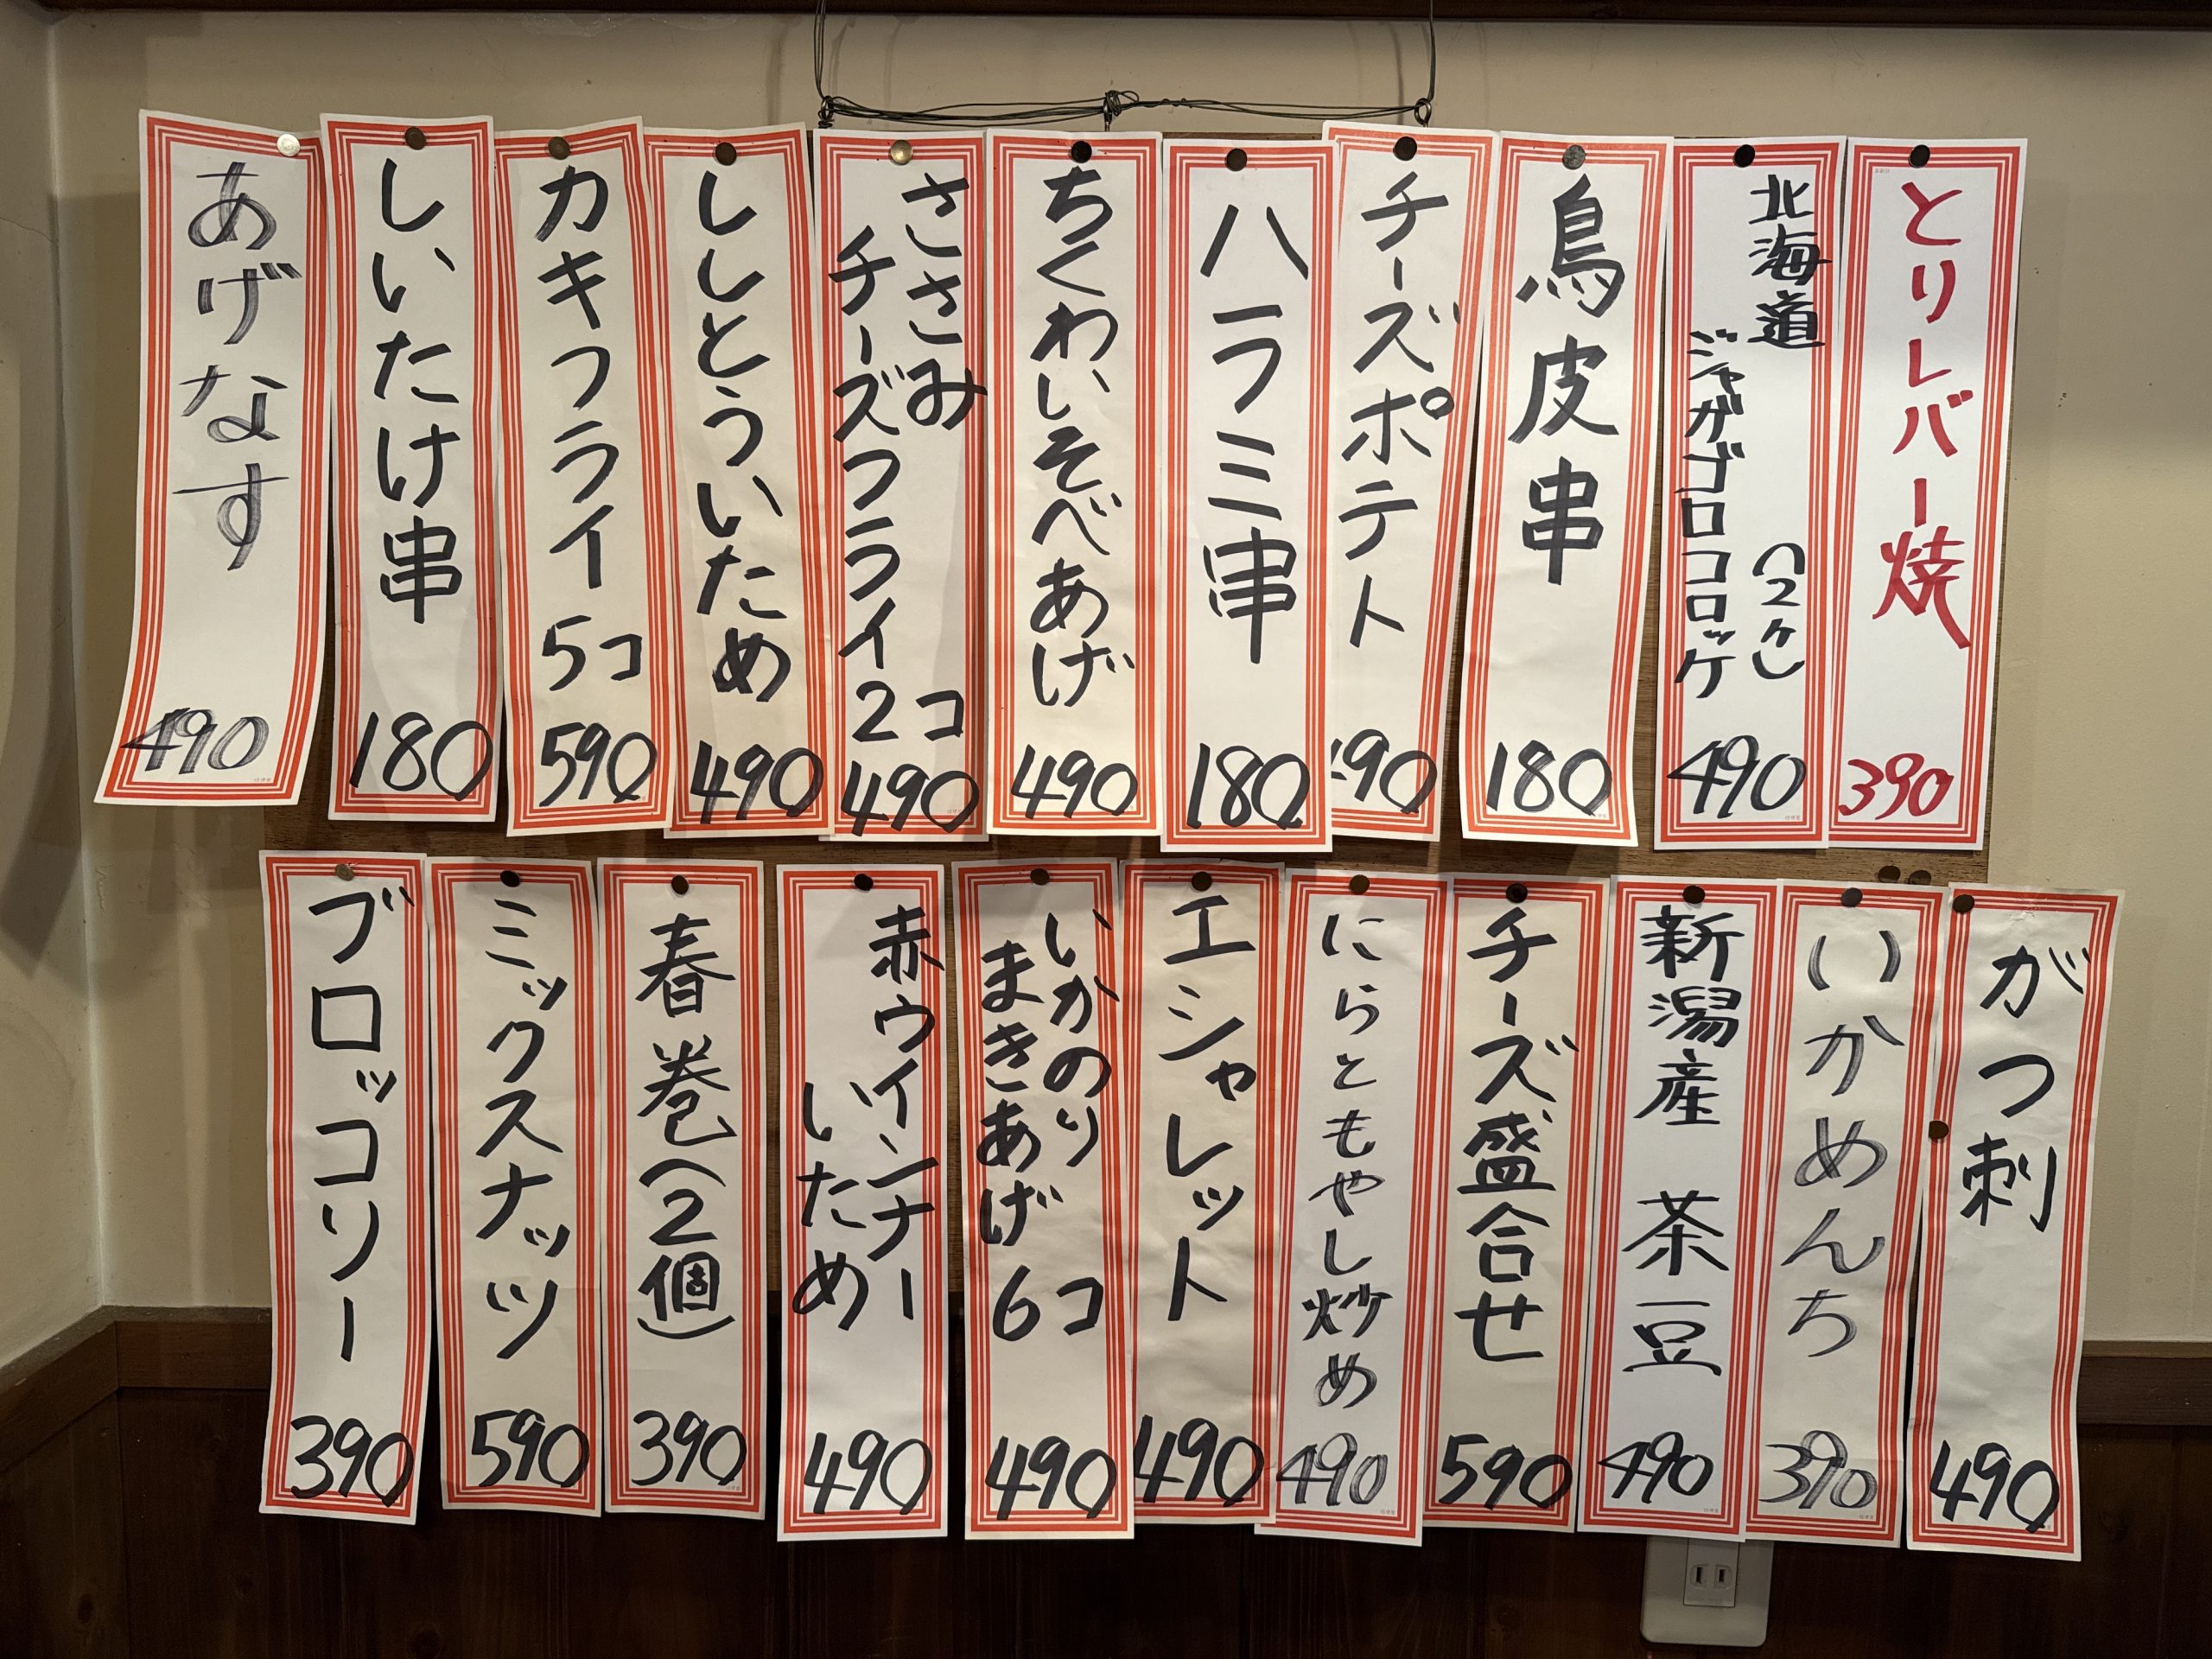 とりレバー焼
390
北海道
ジャガゴロコロッケ
(2ケ)
490
鳥皮串
180
チーズポテト
490
ハラミ串
180
ちくわいそべあげ
490
ささみ
チーズフライ2コ
490
ししとういため
490
カキフライ 5コ
590
しいたけ串
180
あげなす
490
がつ刺
490
いかめんち
390
新潟産 茶豆
490
チーズ盛合せ
590
にらともやし炒め
490
エシャレット
490
いかのり
まきあげ 6コ
490
赤ウインナー
いため
490
春巻(2個)
390
ミックスナッツ
590
ブロッコリー
390